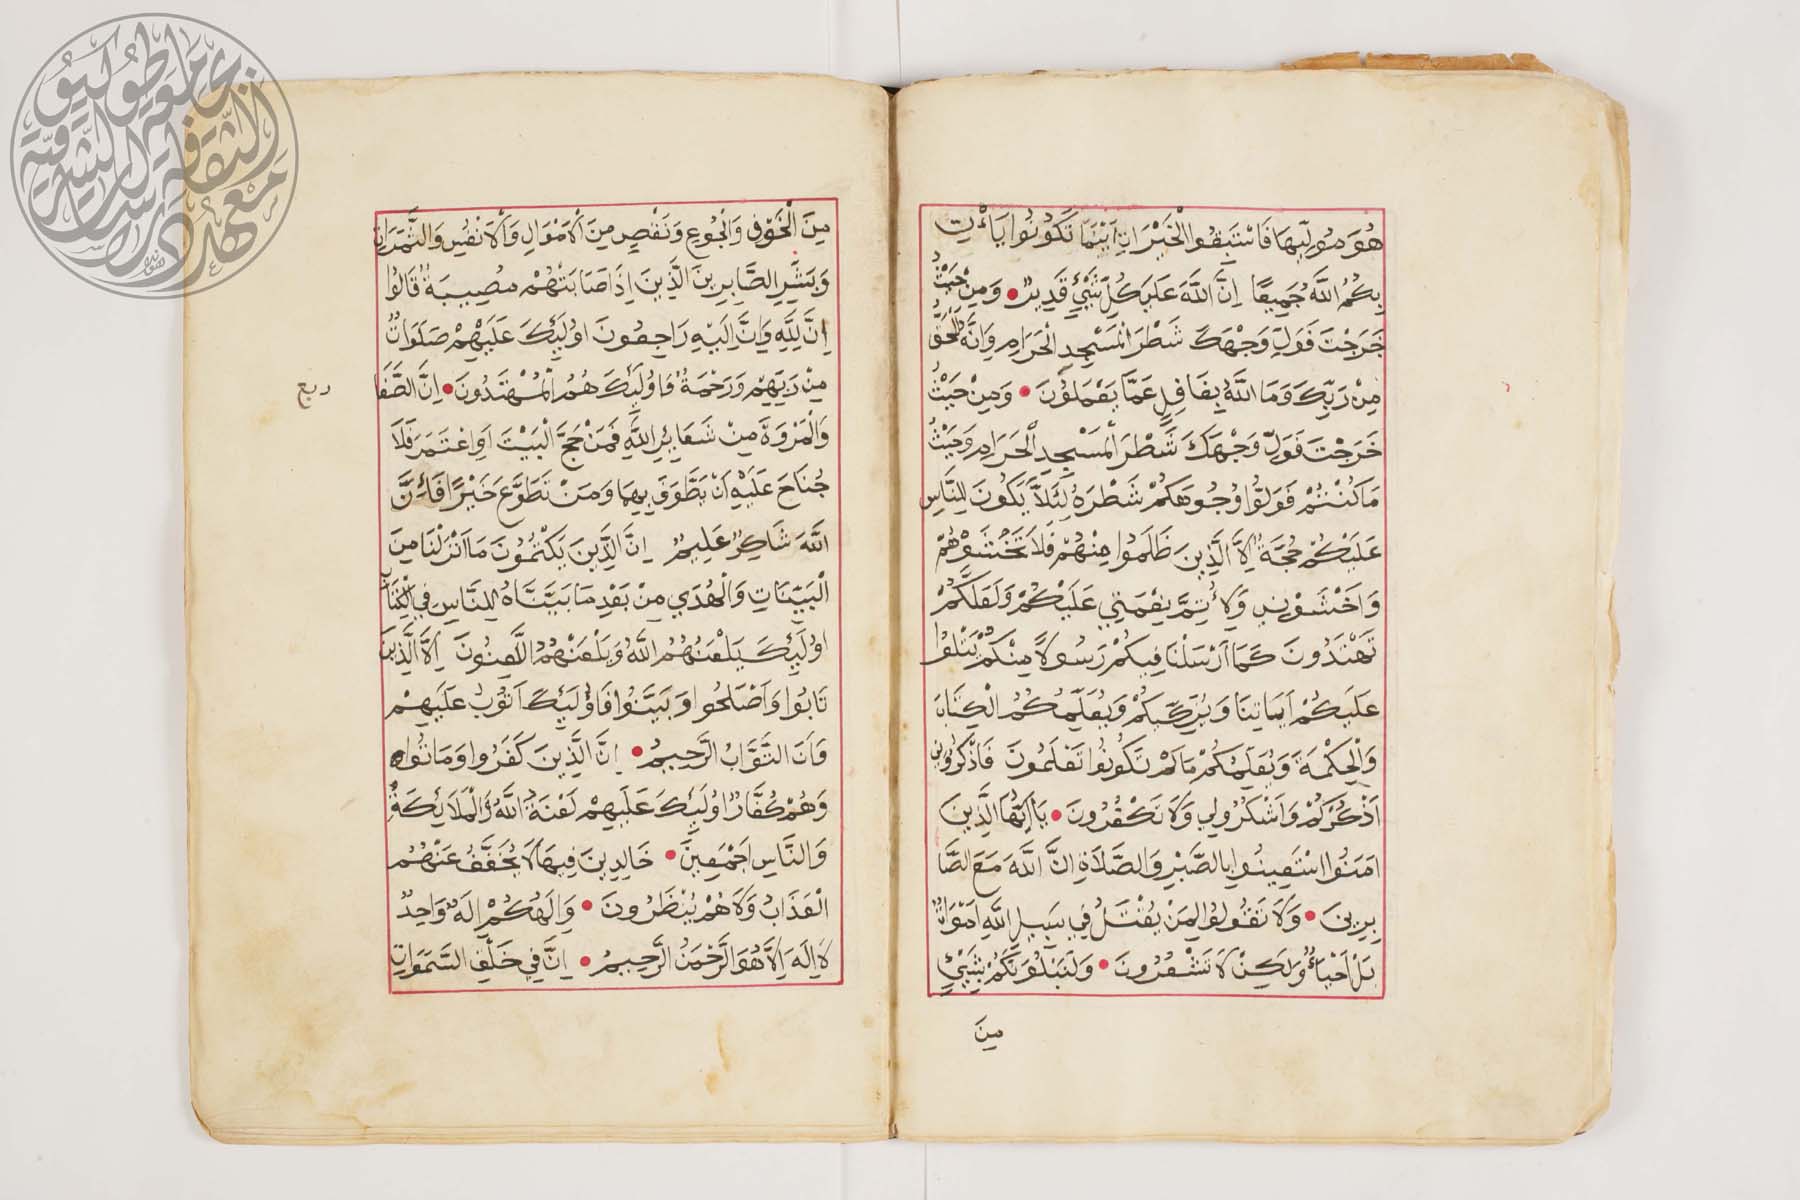 هُوَ مُوَلِّيهَا فَاسْتَبِقُوا الْخَيْرَاتِ اَيْنَمَا تَكُونُوا يَاْتِ
بِكُمُ اللَّهُ جَمِيعًا اِنَّ اللَّهَ عَلَى كُلِّ شَيْءٍ قَدِيرٌ وَمِنْ حَيْثُ
خَرَجْتَ فَوَلِّ وَجْهَكَ شَطْرَ الْمَسْجِدِ الْحَرَامِ وَاِنَّهُ لَلْحَقُّ
مِنْ رَبِّكَ وَمَا اللَّهُ بِغَافِلٍ عَمَّا يَعْمَلُونَ وَمِنْ حَيْثُ
خَرَجْتَ فَوَلِّ وَجْهَكَ شَطْرَ الْمَسْجِدِ الْحَرَامِ وَحَيْثُ
مَا كُنْتُمْ فَوَلُّوا وُجُوهَكُمْ شَطْرَهُ لِئَلَّا يَكُونَ لِلنَّاسِ
عَلَيْكُمْ حُجَّةٌ اِلَّا الَّذِينَ ظَلَمُوا مِنْهُمْ فَلَا تَخْشَوْهُمْ
وَاخْشَوْنِي وَلِاُتِمَّ نِعْمَتِي عَلَيْكُمْ وَلَعَلَّكُمْ
تَهْتَدُونَ كَمَا اَرْسَلْنَا فِيكُمْ رَسُولًا مِنْكُمْ يَتْلُوا
عَلَيْكُمْ اَيَاتِنَا وَيُزَكِّيكُمْ وَيُعَلِّمُكُمُ الْكِتَابَ
وَالْحِكْمَةَ وَيُعَلِّمُكُمْ مَا لَمْ تَكُونُوا تَعْلَمُونَ فَاذْكُرُونِي
اَذْكُرْكُمْ وَاشْكُرُوا لِي وَلَا تَكْفُرُونِ يَا اَيُّهَا الَّذِينَ
اٰمَنُوا اسْتَعِينُوا بِالصَّبْرِ وَالصَّلَاةِ اِنَّ اللَّهَ مَعَ الصَّا
بِرِينَ وَلَا تَقُولُوا لِمَنْ يُقْتَلُ فِي سَبِيلِ اللَّهِ اَمْوَاتٌ
بَلْ اَحْيَاءٌ وَلَكِنْ لَا تَشْعُرُونَ وَلَنَبْلُوَنَّكُمْ بِشَيْءٍ
مِنَ
مِنَ الْخَوْفِ وَالْجُوعِ وَنَقْصٍ مِنَ الْاَمْوَالِ وَالْاَنْفُسِ وَالثَّمَرَاتِ
وَبَشِّرِ الصَّابِرِينَ الَّذِينَ اِذَا اَصَابَتْهُمْ مُصِيبَةٌ قَالُوا
اِنَّا لِلَّهِ وَاِنَّا اِلَيْهِ رَاجِعُونَ اُولَئِكَ عَلَيْهِمْ صَلَوَاتٌ
مِنْ رَبِّهِمْ وَرَحْمَةٌ وَاُولَئِكَ هُمُ الْمُهْتَدُونَ اِنَّ الصَّفَا
ربع
وَالْمَرْوَةَ مِنْ شَعَائِرِ اللَّهِ فَمَنْ حَجَّ الْبَيْتَ اَوِ اعْتَمَرَ فَلَا
جُنَاحَ عَلَيْهِ اَنْ يَطَّوَّفَ بِهِمَا وَمَنْ تَطَوَّعَ خَيْرًا فَاِنَّ
اللَّهَ شَاكِرٌ عَلِيمٌ اِنَّ الَّذِينَ يَكْتُمُونَ مَا اَنْزَلْنَا مِنَ
الْبَيِّنَاتِ وَالْهُدَى مِنْ بَعْدِ مَا بَيَّنَّاهُ لِلنَّاسِ فِي الْكِتَابِ
اُولَئِكَ يَلْعَنُهُمُ اللَّهُ وَيَلْعَنُهُمُ اللَّاعِنُونَ اِلَّا الَّذِينَ
تَابُوا وَاَصْلَحُوا وَبَيَّنُوا فَاُولَئِكَ اَتُوبُ عَلَيْهِمْ
وَاَنَا التَّوَّابُ الرَّحِيمُ اِنَّ الَّذِينَ كَفَرُوا وَمَاتُوا
وَهُمْ كُفَّارٌ اُولَئِكَ عَلَيْهِمْ لَعْنَةُ اللَّهِ وَالْمَلَائِكَةِ
وَالنَّاسِ اَجْمَعِينَ خَالِدِينَ فِيهَا لَا يُخَفَّفُ عَنْهُمُ
الْعَذَابُ وَلَا هُمْ يُنْظَرُونَ وَاِلَهُكُمْ اِلَهٌ وَاحِدٌ
لَا اِلَهَ اِلَّا هُوَ الرَّحْمَنُ الرَّحِيمُ اِنَّ فِي خَلْقِ السَّمَوَاتِ